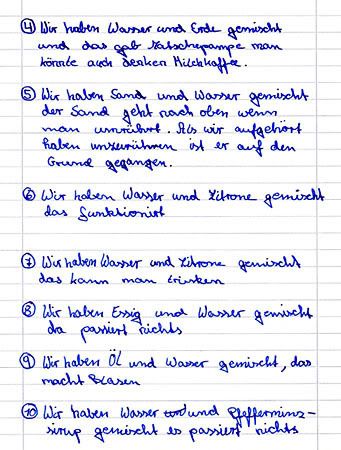 ④ Wir haben Wasser und Erde gemischt
und das gab Matschepampe man
könnte auch denken Milchkaffee.
⑤ Wir haben Sand und Wasser gemischt
der Sand geht nach oben wenn
man umrührt. Als wir aufgehört
haben umzurühren ist er auf den
Grund gegangen.
⑥ Wir haben Wasser und Zitrone gemischt
das funktioniert
⑦ Wir haben Wasser und Zitrone gemischt
das kann man trinken
⑧ Wir haben Essig und Wasser gemischt
da passiert nichts
⑨ Wir haben Öl und Wasser gemischt, das
macht Blasen
⑩ Wir haben Wasser und Pfefferminz-
sirup gemischt es passiert nichts